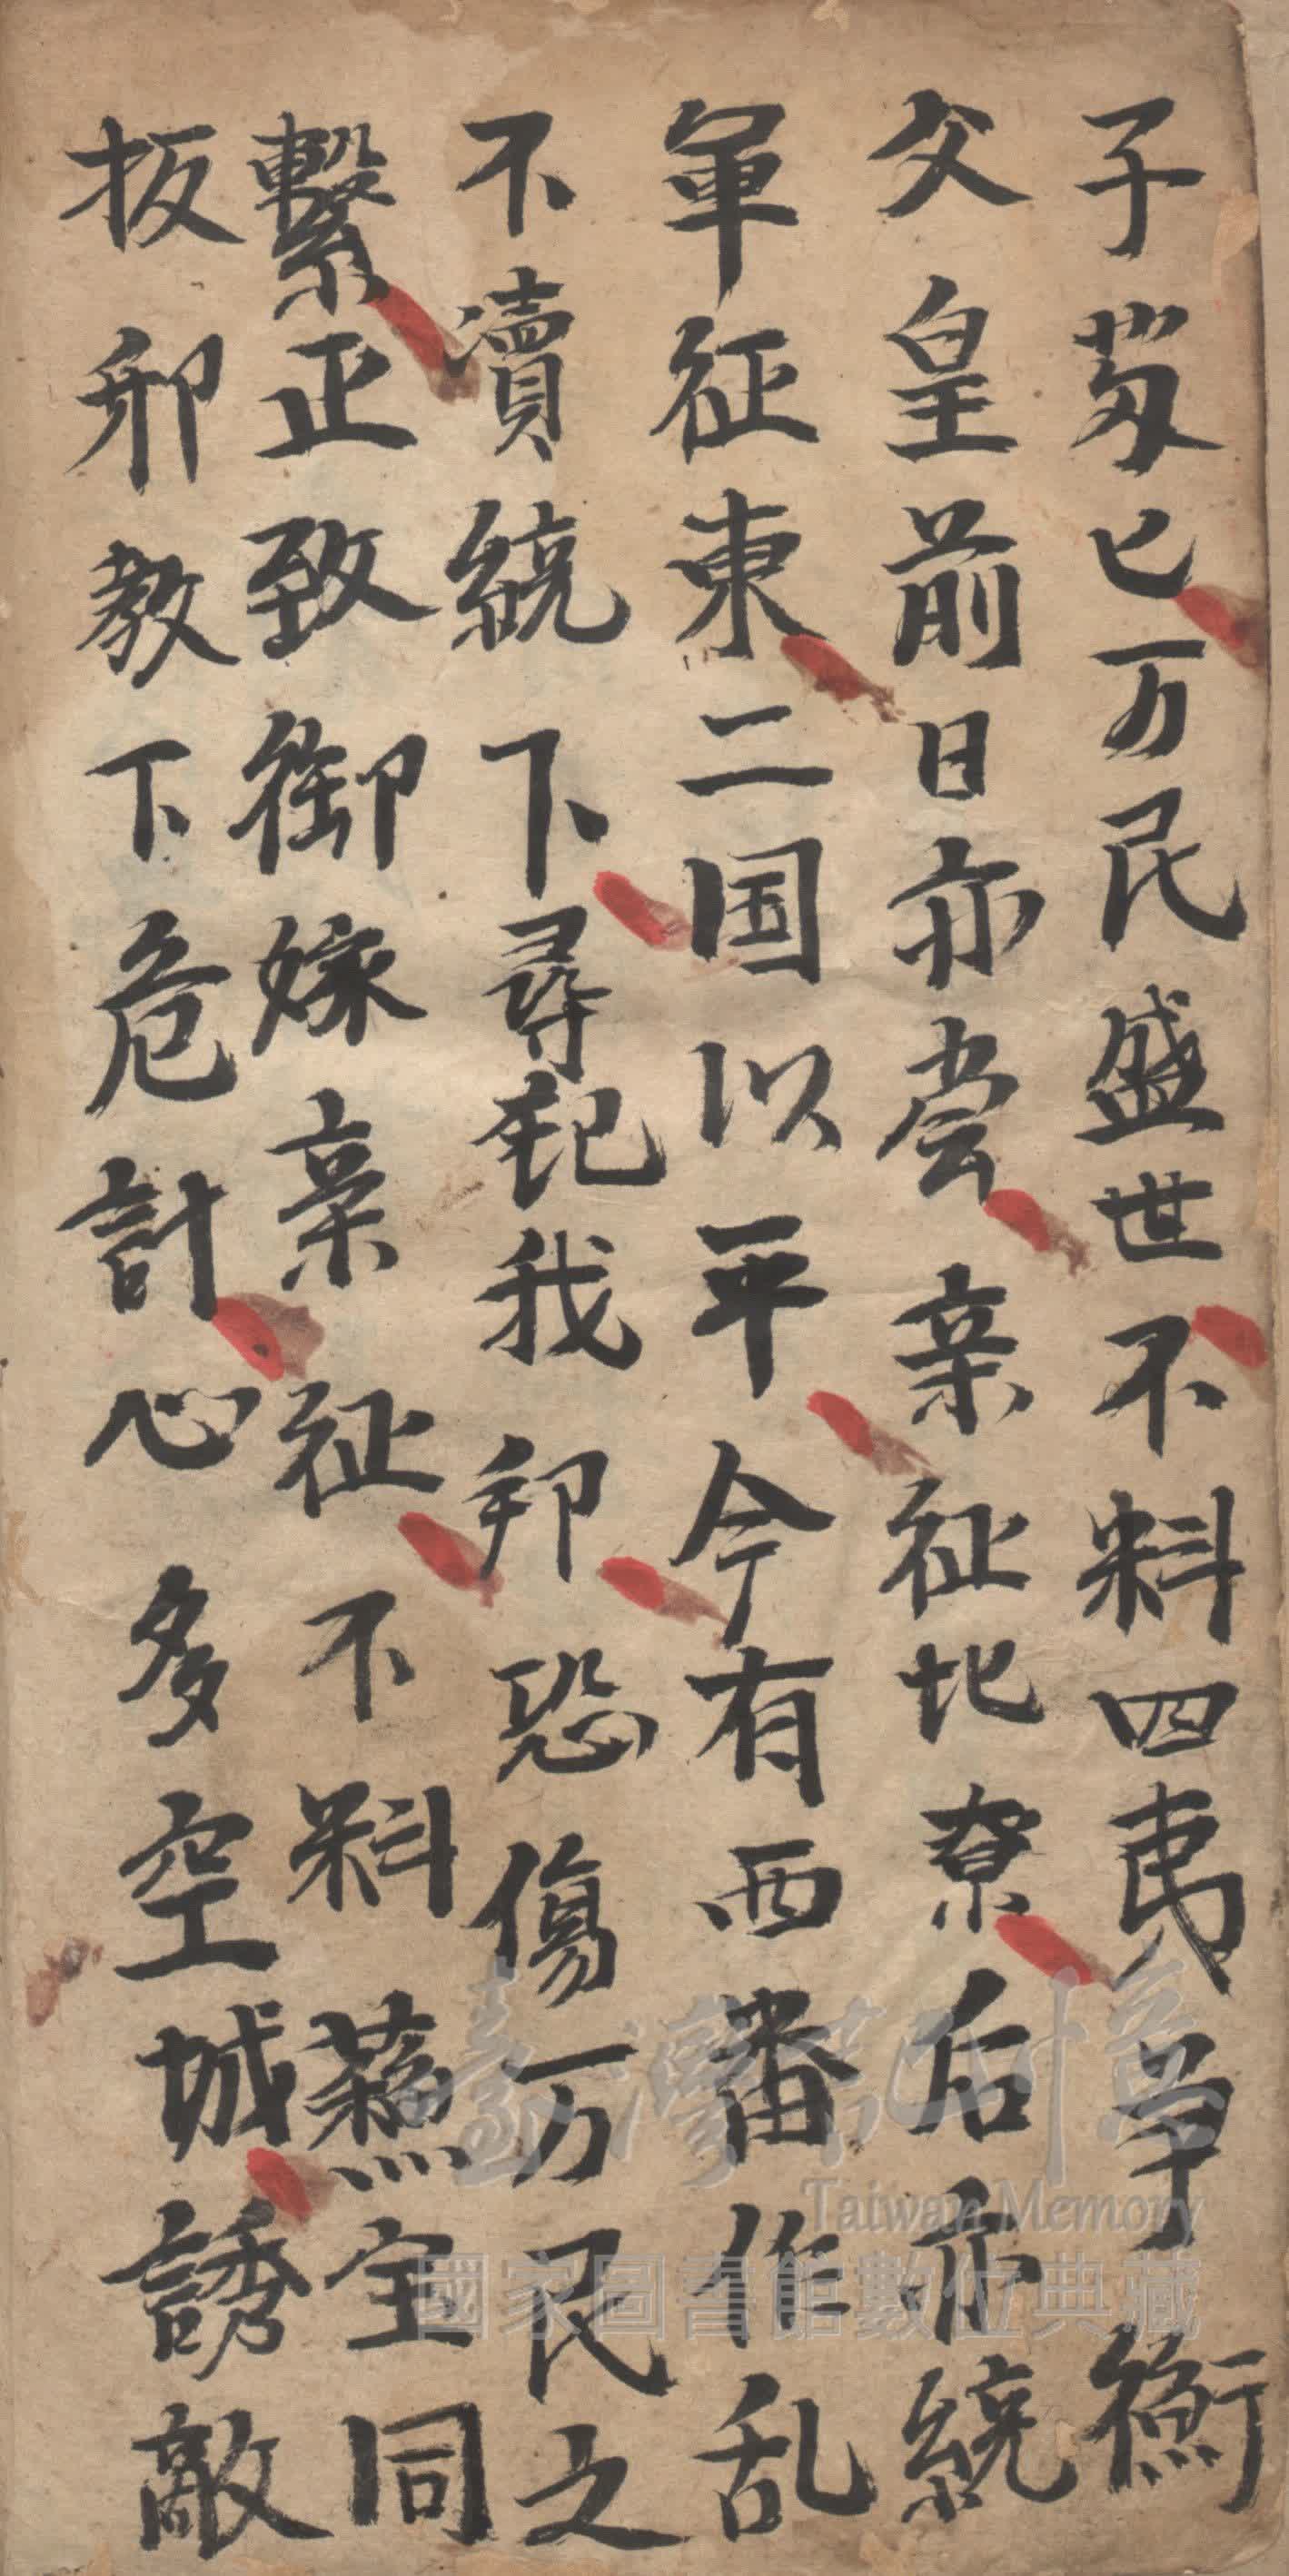 子笏已万民盛世不料四夷争衡
父皇前日亦尝亲征北寮后亦統
軍征東二国以平今有西番作乱
不瀆統下尋犯我邦恐傷万民之
繫正致御嫁亲征不料蘓宝同
扳邪教下危計心多空城誘敵
臺灣記憶
Taiwan Memory
國家圖書館數位典藏